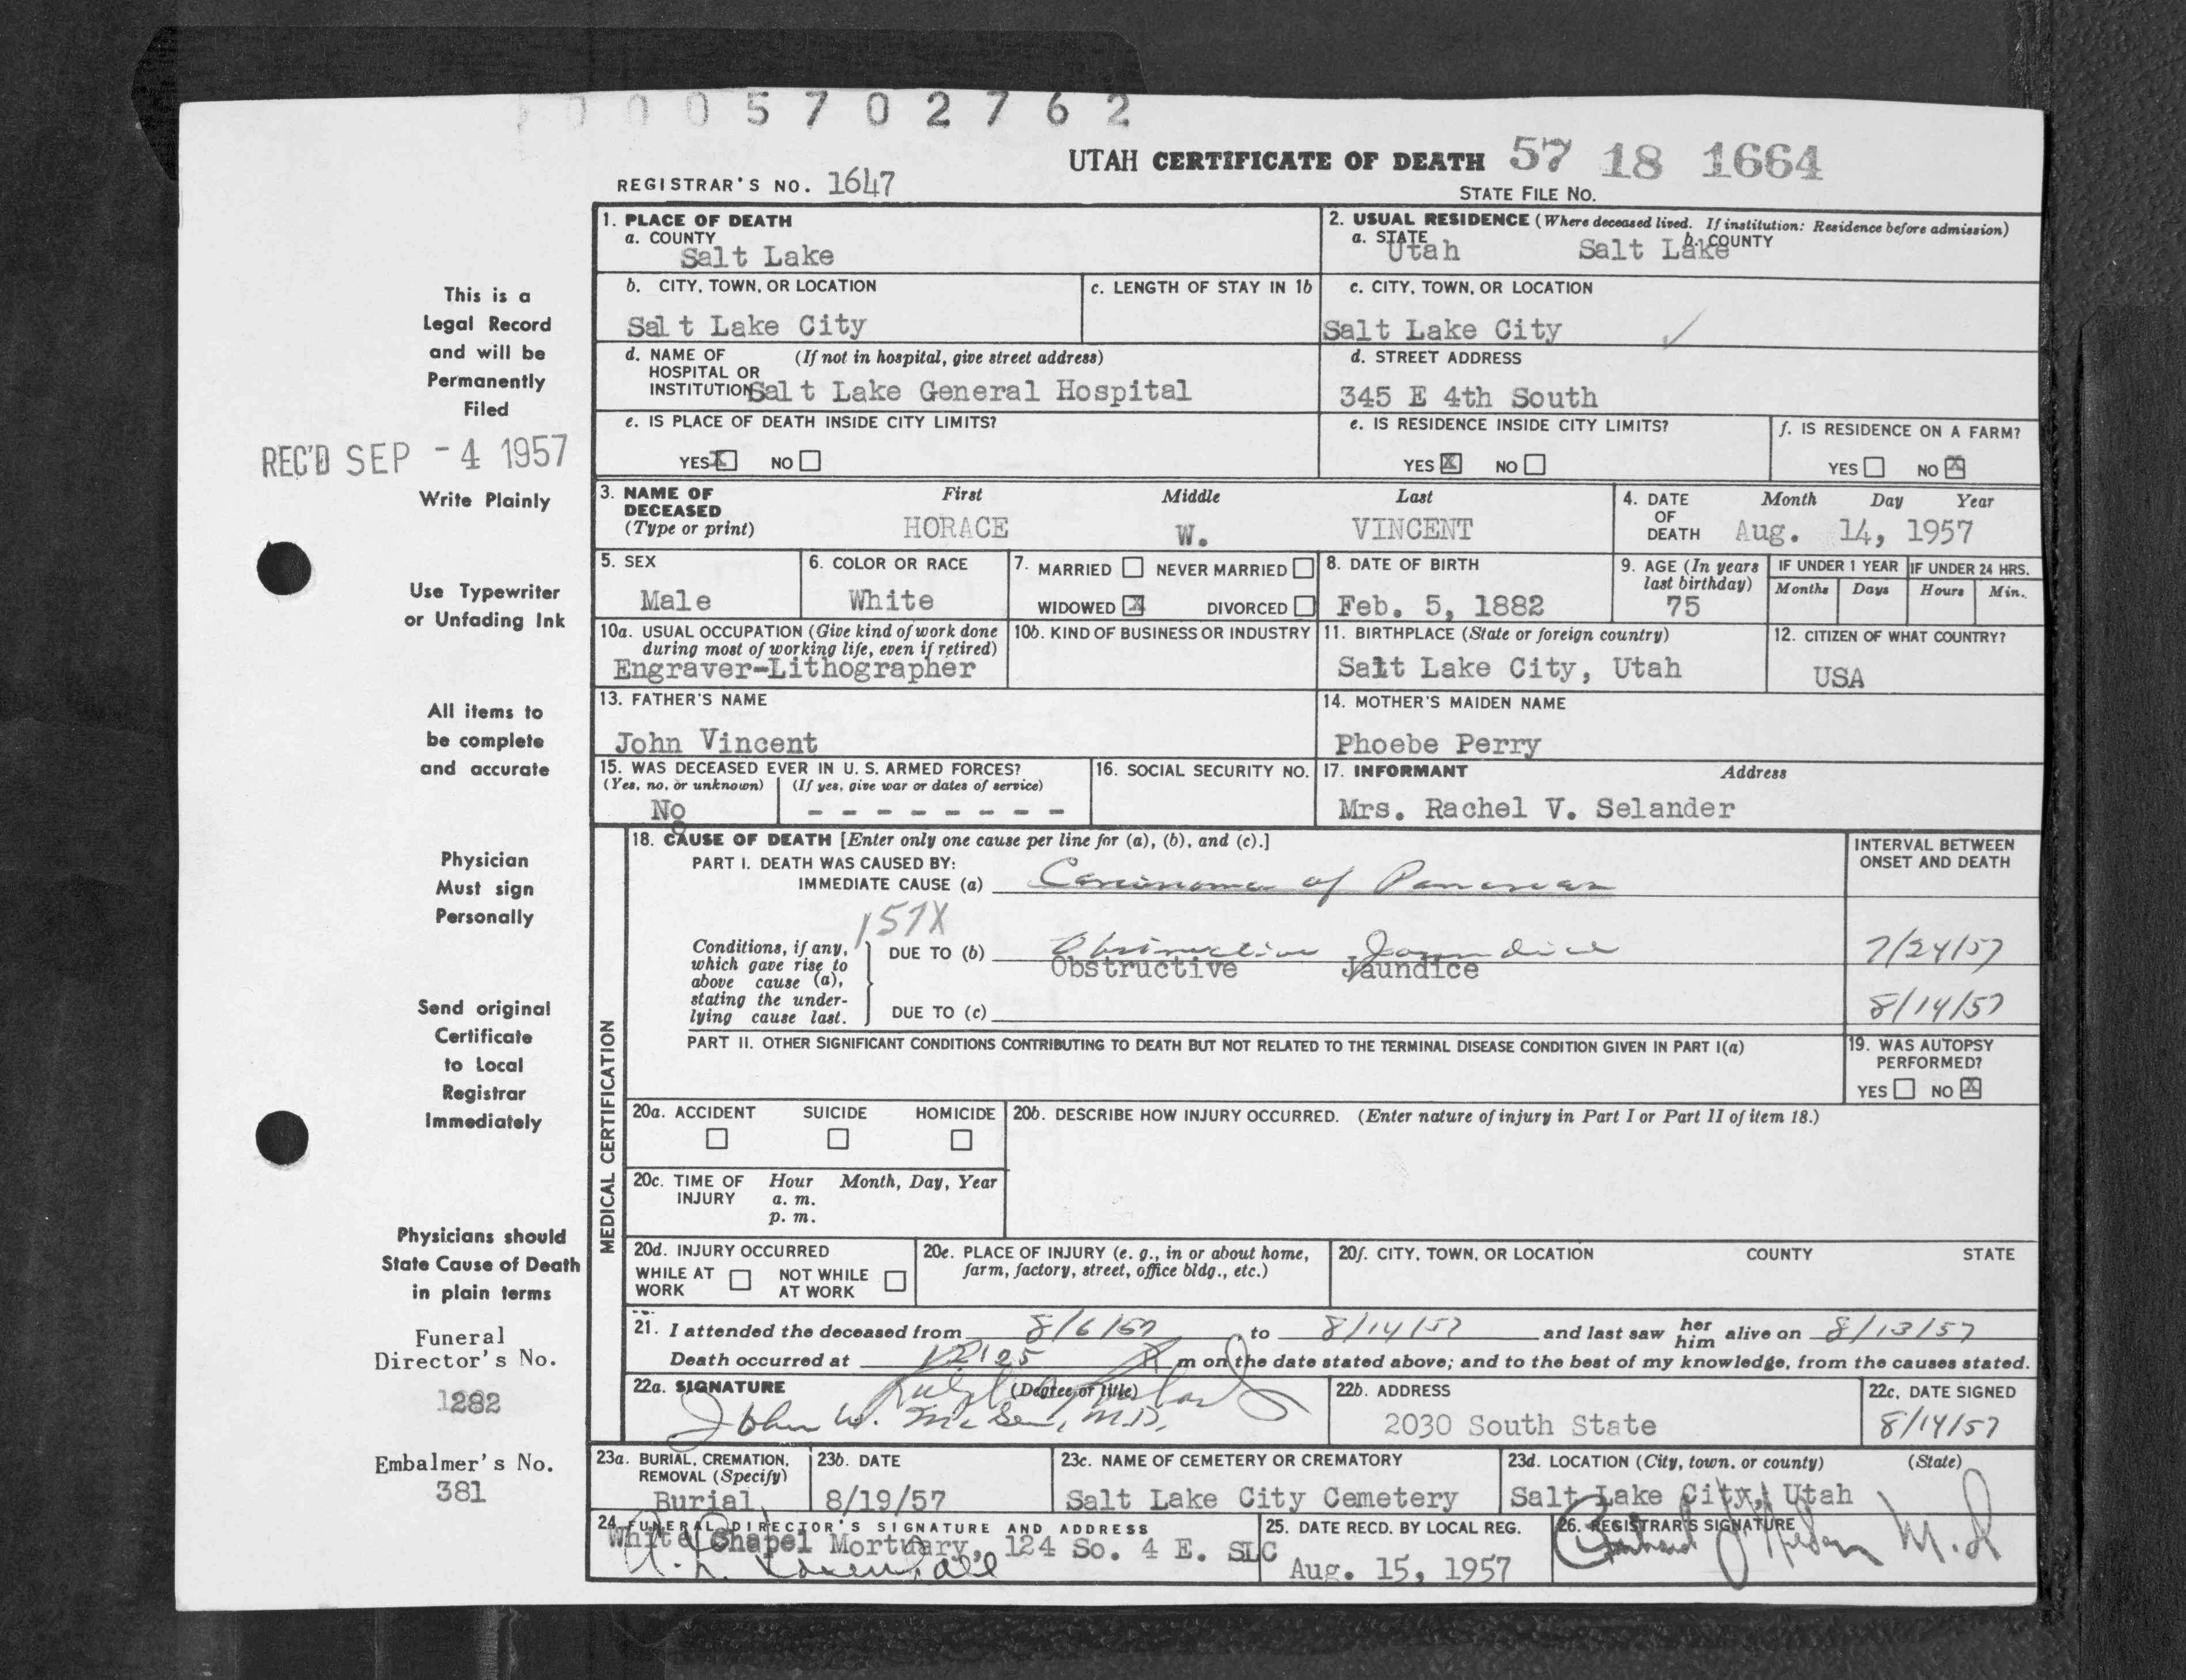 0 0 0 5 7 0 2 7 6 2
UTAH CERTIFICATE OF DEATH 57 18 1664
REGISTRAR'S NO. 1647
STATE FILE NO.
1. PLACE OF DEATH
a. COUNTY
Salt Lake
2. USUAL RESIDENCE (Where deceased lived. If institution: Residence before admission)
a. STATE b. COUNTY
Utah Salt Lake
b. CITY, TOWN, OR LOCATION
Salt Lake City
c. LENGTH OF STAY IN 1b
c. CITY, TOWN, OR LOCATION
Salt Lake City
d. NAME OF (If not in hospital, give street address)
HOSPITAL OR
INSTITUTION Salt Lake General Hospital
d. STREET ADDRESS
345 E 4th South
e. IS PLACE OF DEATH INSIDE CITY LIMITS?
YES X NO
e. IS RESIDENCE INSIDE CITY LIMITS?
YES X NO
f. IS RESIDENCE ON A FARM?
YES NO X
3. NAME OF DECEASED
(Type or print)
First Middle Last
HORACE W. VINCENT
4. DATE OF DEATH
Month Day Year
Aug. 14, 1957
5. SEX
Male
6. COLOR OR RACE
White
7. MARRIED NEVER MARRIED
WIDOWED X DIVORCED
8. DATE OF BIRTH
Feb. 5, 1882
9. AGE (In years last birthday)
75
IF UNDER 1 YEAR
Months Days
IF UNDER 24 HRS.
Hours Min.
10a. USUAL OCCUPATION (Give kind of work done
during most of working life, even if retired)
Engraver-Lithographer
10b. KIND OF BUSINESS OR INDUSTRY
11. BIRTHPLACE (State or foreign country)
Salt Lake City, Utah
12. CITIZEN OF WHAT COUNTRY?
USA
13. FATHER'S NAME
John Vincent
14. MOTHER'S MAIDEN NAME
Phoebe Perry
15. WAS DECEASED EVER IN U. S. ARMED FORCES?
(Yes, no, or unknown) (If yes, give war or dates of service)
No - - - - - - - - -
16. SOCIAL SECURITY NO.
17. INFORMANT Address
Mrs. Rachel V. Selander
MEDICAL CERTIFICATION
18. CAUSE OF DEATH [Enter only one cause per line for (a), (b), and (c).]
PART I. DEATH WAS CAUSED BY:
IMMEDIATE CAUSE (a) Carcinoma of Pancreas
157X
INTERVAL BETWEEN
ONSET AND DEATH
Conditions, if any,
which gave rise to
above cause (a),
stating the under-
lying cause last.
DUE TO (b) Obstructive Jaundice
Obstructive Jaundice
7/24/57
DUE TO (c)
8/14/57
PART II. OTHER SIGNIFICANT CONDITIONS CONTRIBUTING TO DEATH BUT NOT RELATED TO THE TERMINAL DISEASE CONDITION GIVEN IN PART I(a)
19. WAS AUTOPSY
PERFORMED?
YES NO X
20a. ACCIDENT SUICIDE HOMICIDE
20b. DESCRIBE HOW INJURY OCCURRED. (Enter nature of injury in Part I or Part II of item 18.)
20c. TIME OF INJURY
Hour Month, Day, Year
a. m.
p. m.
20d. INJURY OCCURRED
WHILE AT WORK NOT WHILE AT WORK
20e. PLACE OF INJURY (e. g., in or about home,
farm, factory, street, office bldg., etc.)
20f. CITY, TOWN, OR LOCATION COUNTY STATE
21. I attended the deceased from 8/6/57 to 8/14/57 and last saw her him alive on 8/13/57
Death occurred at 12:25 m on the date stated above; and to the best of my knowledge, from the causes stated.
22a. SIGNATURE (Degree or title)
John W. M.D.
22b. ADDRESS
2030 South State
22c. DATE SIGNED
8/14/57
23a. BURIAL, CREMATION,
REMOVAL (Specify)
Burial
23b. DATE
8/19/57
23c. NAME OF CEMETERY OR CREMATORY
Salt Lake City Cemetery
23d. LOCATION (City, town, or county) (State)
Salt Lake City, Utah
24. FUNERAL DIRECTOR'S SIGNATURE AND ADDRESS
White Chapel Mortuary, 124 So. 4 E. SLC
25. DATE RECD. BY LOCAL REG.
Aug. 15, 1957
26. REGISTRAR'S SIGNATURE
M.D.
This is a
Legal Record
and will be
Permanently
Filed
REC'D SEP -4 1957
Write Plainly
Use Typewriter
or Unfading Ink
All items to
be complete
and accurate
Physician
Must sign
Personally
Send original
Certificate
to Local
Registrar
Immediately
Physicians should
State Cause of Death
in plain terms
Funeral
Director's No.
1282
Embalmer's No.
381